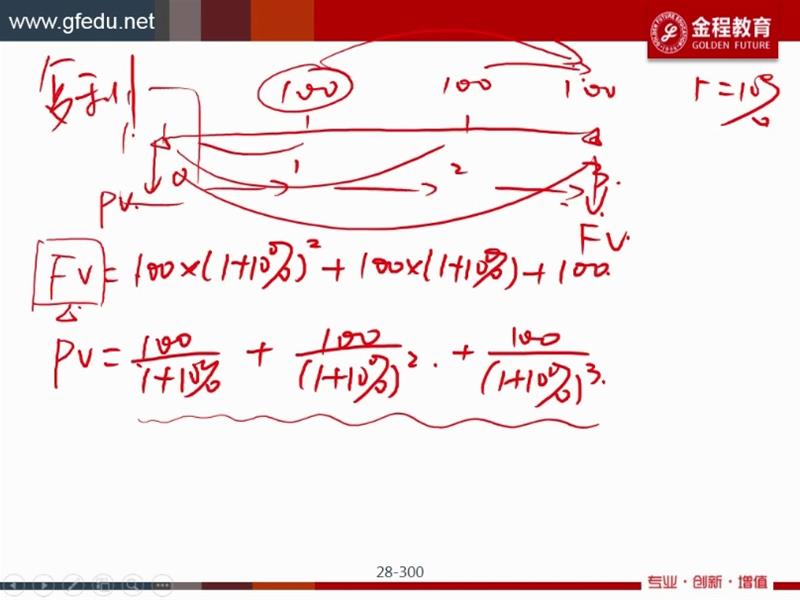 www.gfedu.net
金程教育
GOLDEN FUTURE
复利
100 100 100 r=10%
0 1 2 3
PV FV
FV = 100×(1+10%)² + 100×(1+10%) + 100
PV = 100/(1+10%) + 100/(1+10%)² + 100/(1+10%)³
28-300
专业·创新·增值